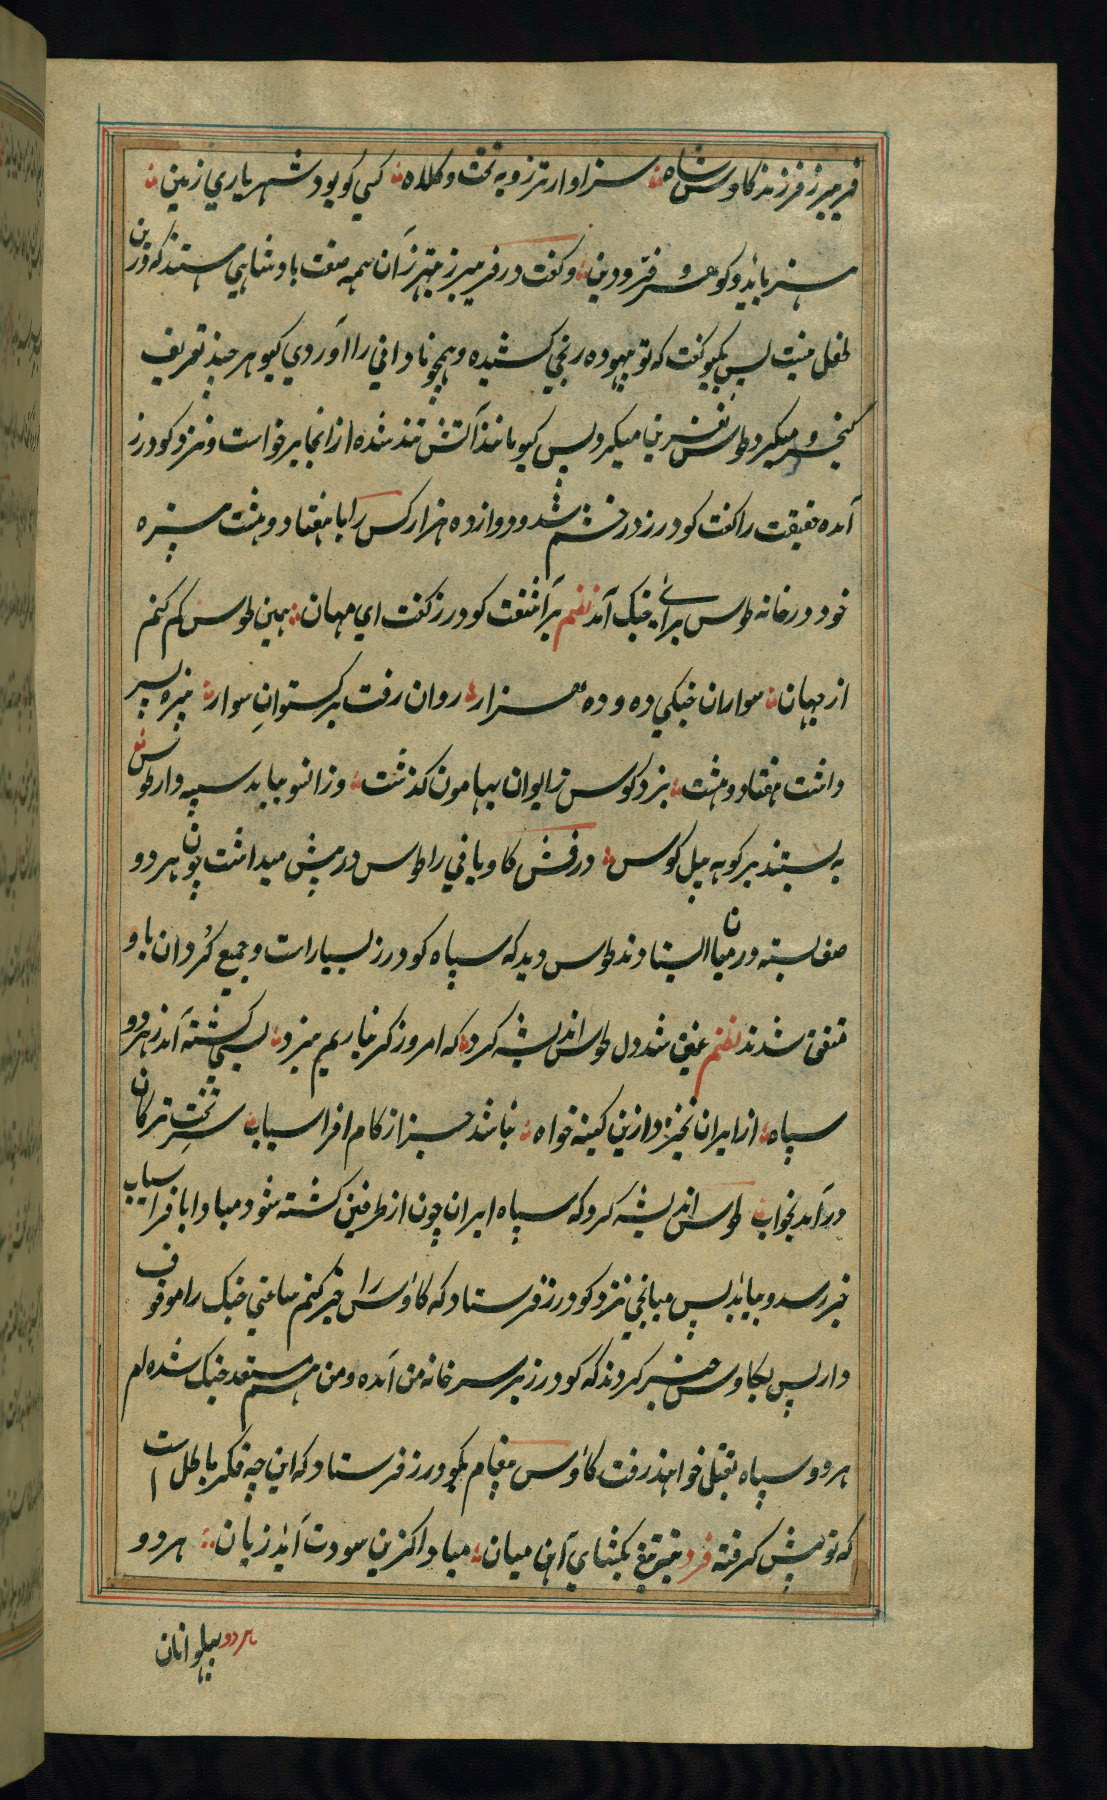 فریبرز فرزند کاوس شاه سزاوارتر زو به تخت و کلاه کسی کو بود شهریاری زمین
هنر باید و گوهر و فر و دین وگفت در فریبرز مهتر زآن همه صفت بادشاهی هستند که درین
طفل نیست پس بکیو گفت که تو بیهوده رنجی کشیده و همچو نادانی را آوردی کیو هر چند تعریف
کیخسرو میکرد طوس نفرینها میکرد پس کیو مانند آتش تند شده از انجا برخواست و نزد کودرز
آمده حقیقت را گفت کودرز در خشم شد و دوازده هزار کس را با هفتاد و هشت نبیره
خود در خانه طوس برای جنک آمد نظم برآشفت کودرز گفت ای مهان همین طوس کم کنم
از جهان سواران جنکی ده و ده هزار روان رفت برکستوان سوار نبیره پسر
داشت هفتاد و هشت بزد کوس ز ایوان بهامون گذشت وزانسو بیامد سپهدار طوس
به بستند بر کوهه پیل کوس درفش کاویانی را طوس در پیش میداشت چون هر دو
صف بسته در میان ایستادند طوس دید که سپاه کودرز بسیار است و جمیع کردان با و
متفق شدند نظم غمین شد دل طوس اندیشه کرد که امروز کر ما بریم نبرد بسی کشته آید ز هر دو
سپاه از ایران نخیزد ازین کینه خواه نباشد جز از کام افراسیاب سر تخت ترکان
درآید بخواب طوس اندیشه کرد که سپاه ایران چون از طرفین کشته شود مبادا بافراسیاب
خبر رسد و بیاید پس میانجی نزد کودرز فرستاد که کاوس را خبر کنم ساعتی جنک را موقوف
دار پس بکاوس خبر کردند که کودرز بر سر خانه من آمده و من هم مستعد جنک شده ام
هر دو سپاه بقتل خواهند رفت کاوس پیغام بکودرز فرستاد که این چه فکر باطل است
که تو پیش گرفته فرد بنه تیغ بکشای آهن میان مبادا کزین سودت آید زیان هر دو
هر دو پهلوانان